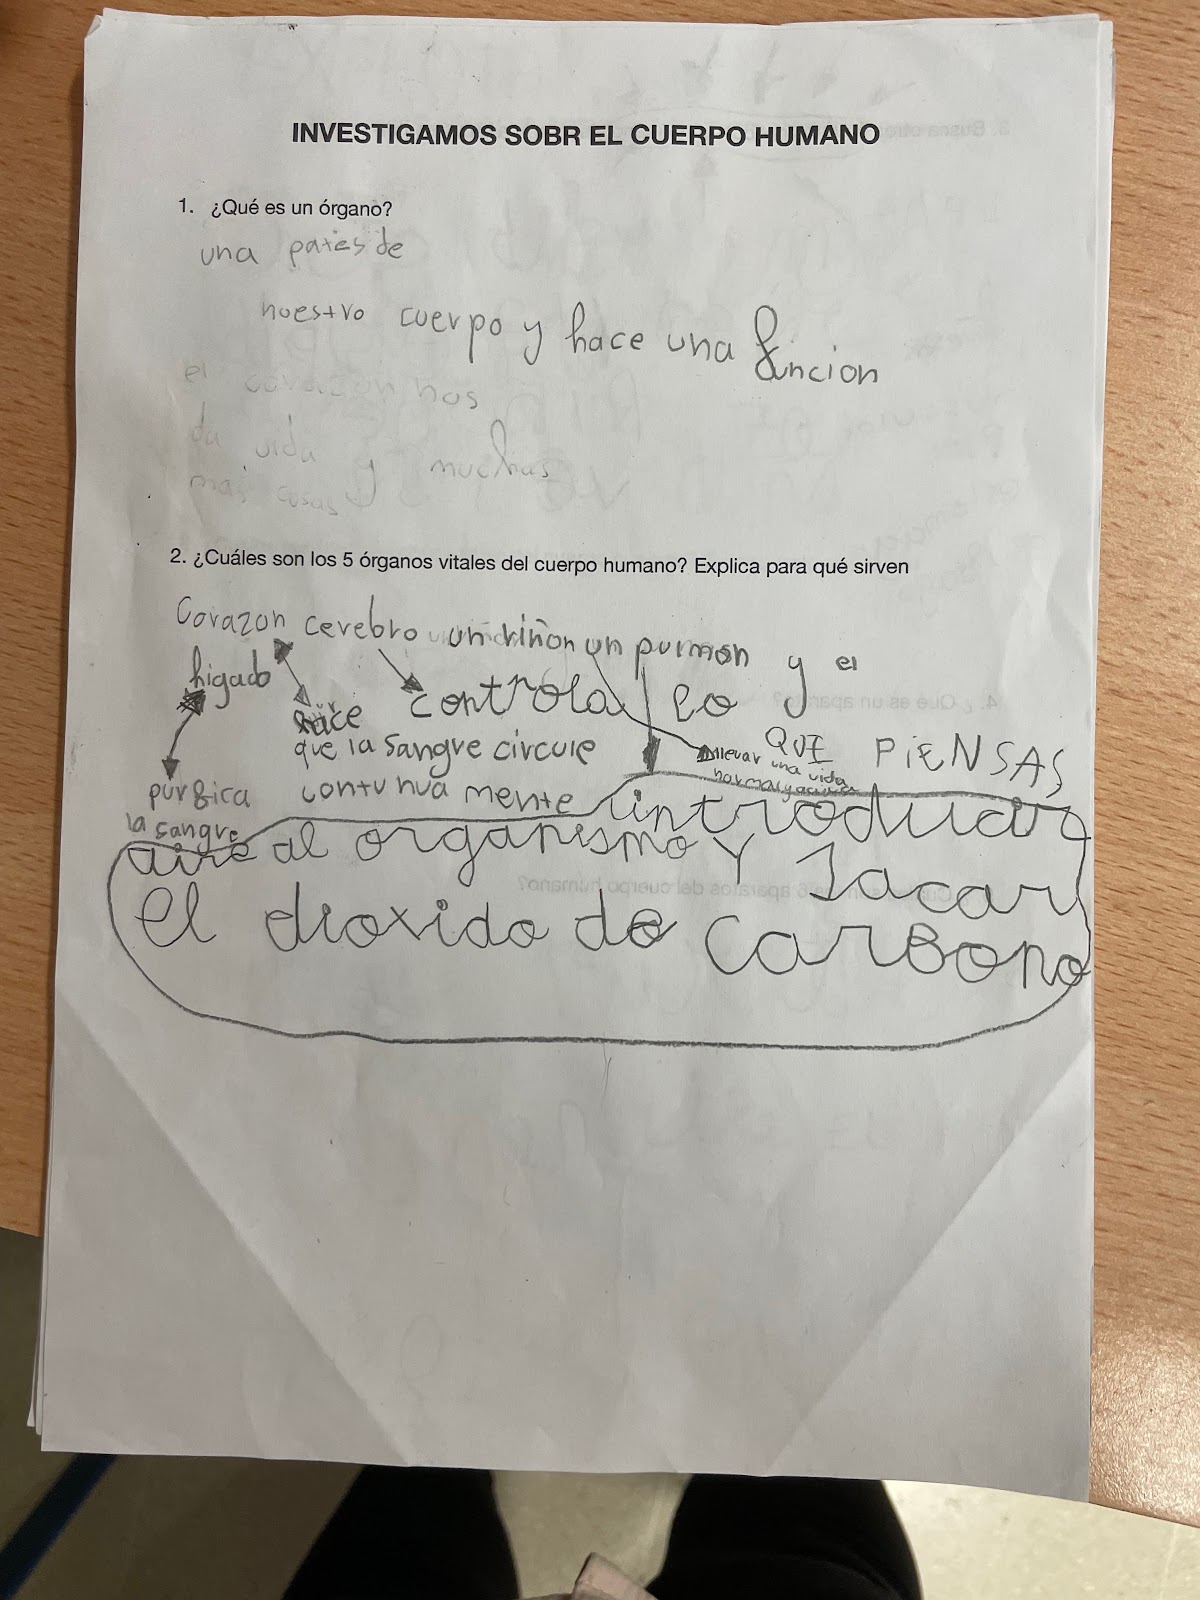 INVESTIGAMOS SOBR EL CUERPO HUMANO
1. ¿Qué es un órgano?
una partes de
nuestro cuerpo y hace una funcion
el corazon nos
da vida y muchas
mas cosas
2. ¿Cuáles son los 5 órganos vitales del cuerpo humano? Explica para qué sirven
Corazon cerebro un riñon un purmon y el
higado
hace
que la sangre circule
contunua mente
controla lo
QUE PiENSAS
llevar una vida
normal y
purifica
la sangre
introducir
aire al organismo y sacar
el dioxido de carBono